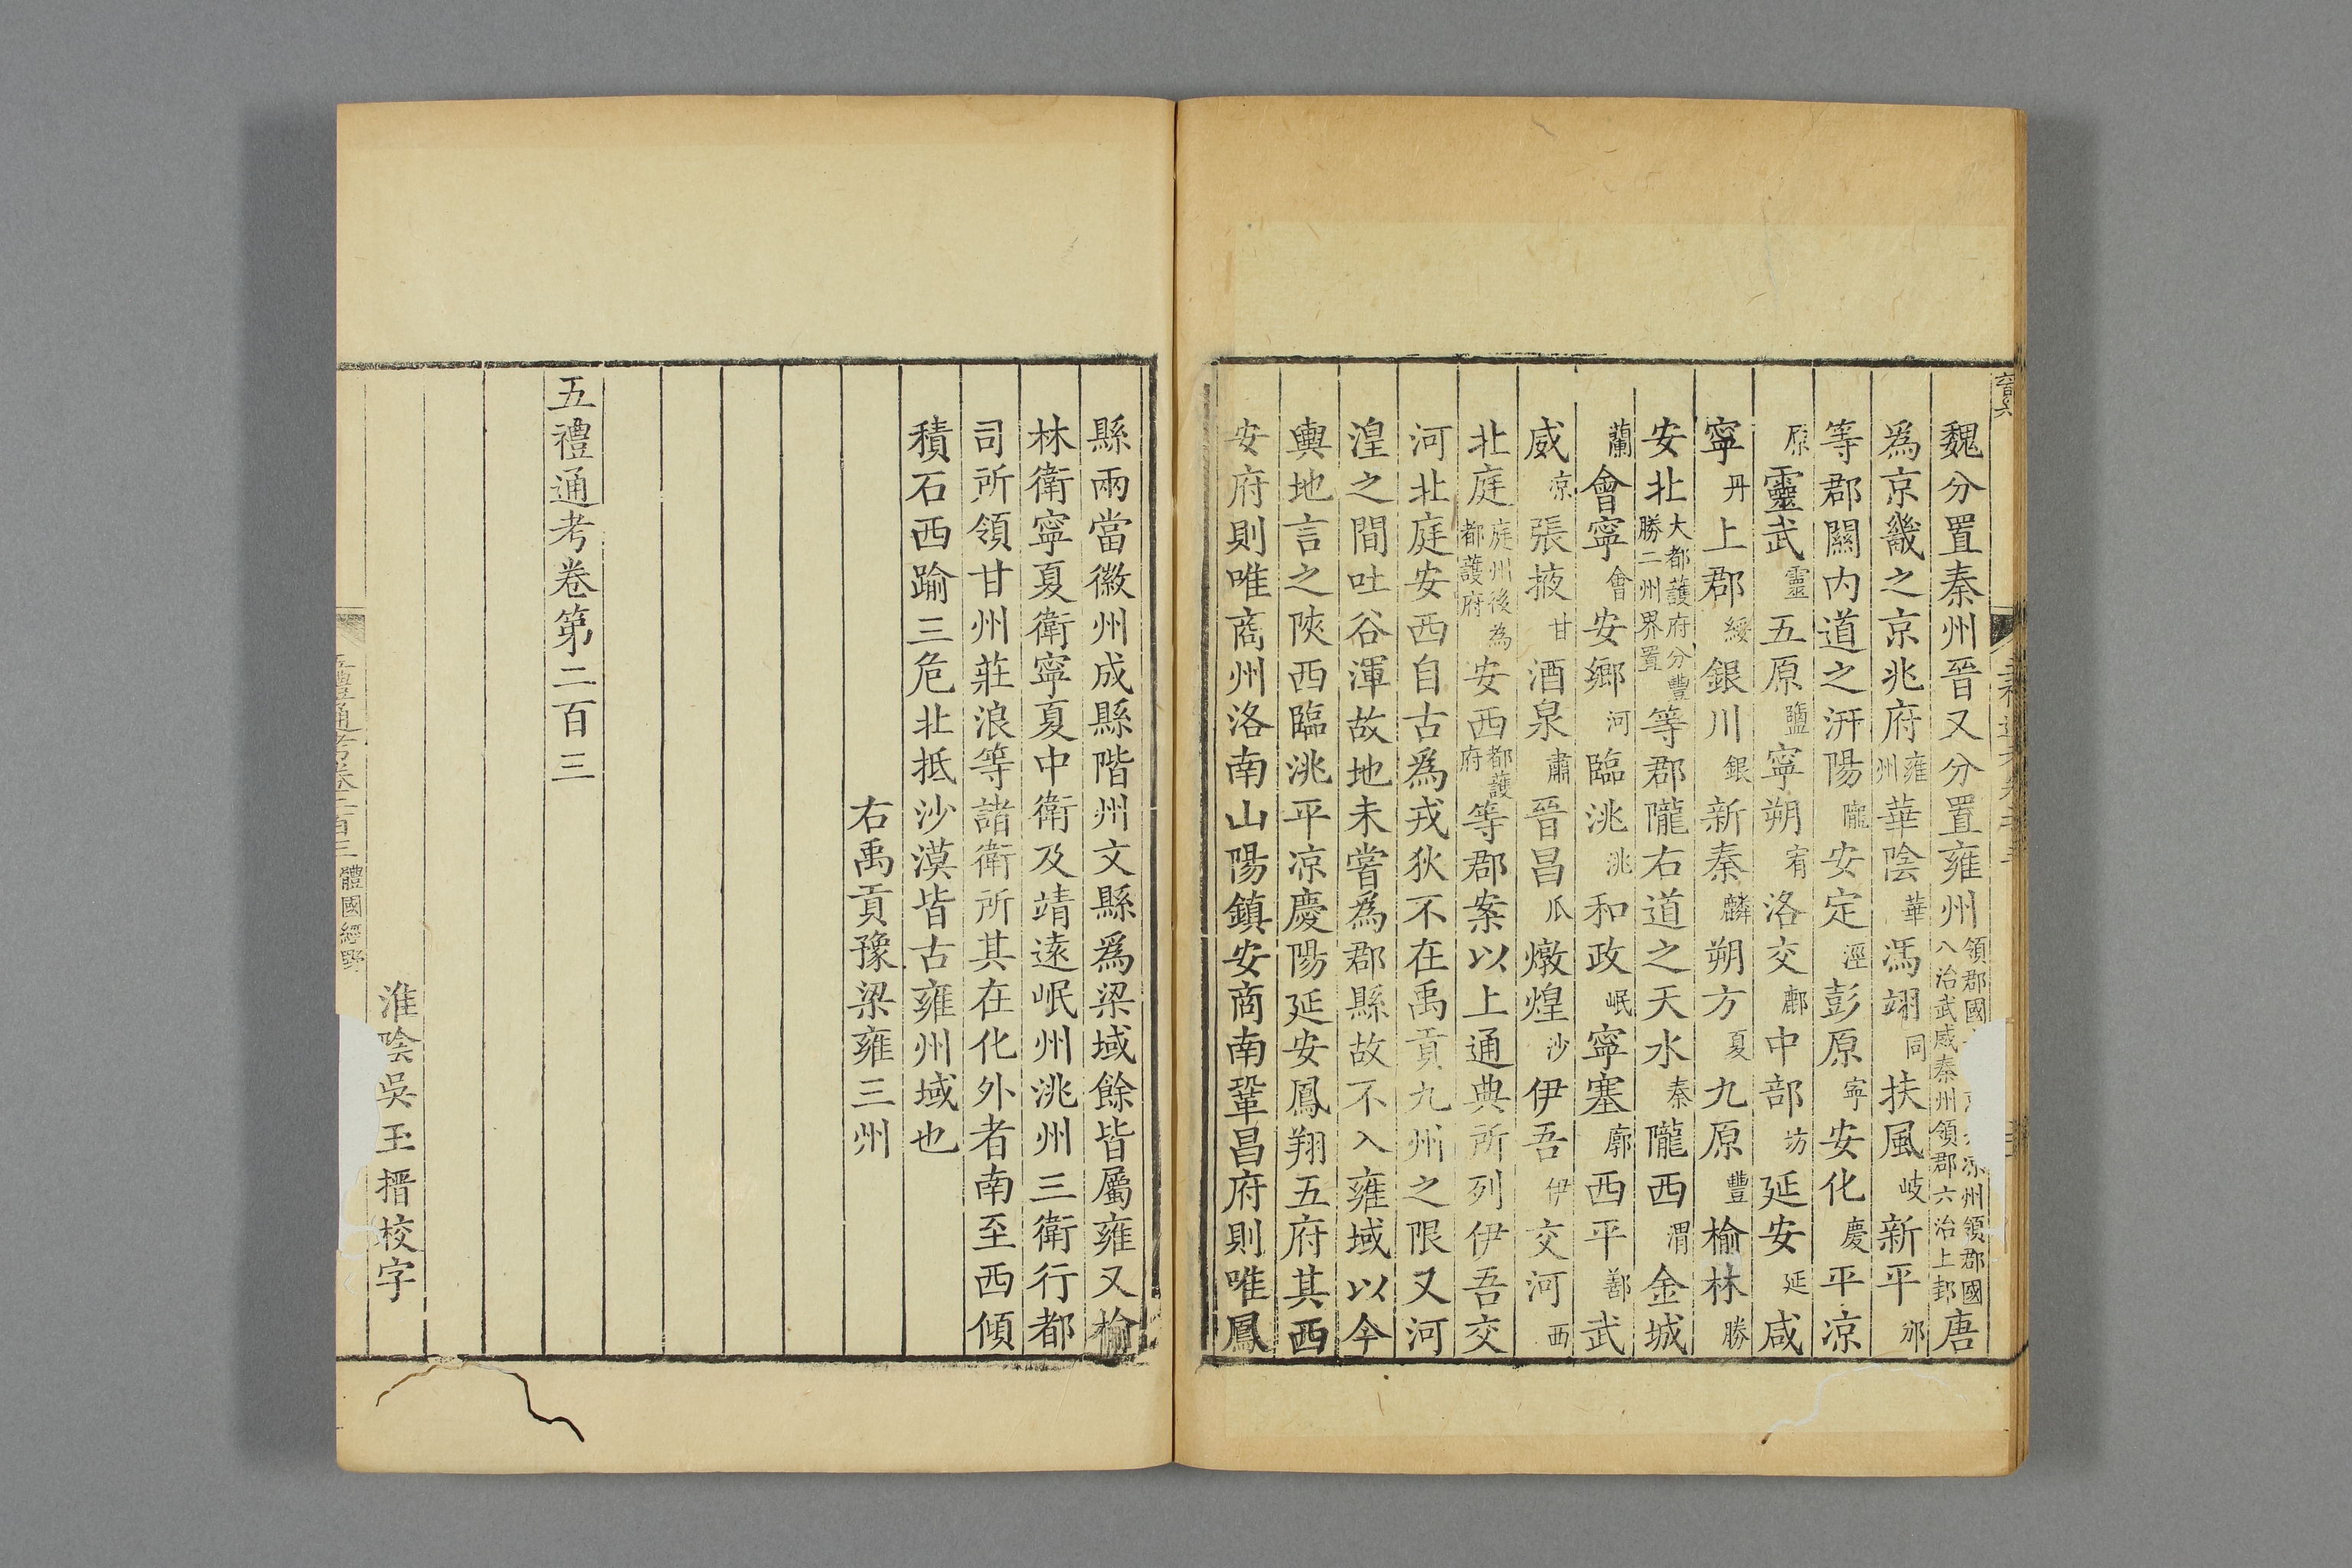 魏分置秦州晉又分置雍州領郡國八治武威秦州領郡六治上邽州領郡國唐
爲京畿之京兆府雍州華陰華馮翊同扶風岐新平邠
等郡關內道之汧陽隴安定涇彭原寧安化慶平涼
原靈武靈五原鹽寧朔宥洛交鄜中部坊延安延咸
寧丹上郡綏銀川銀新秦麟朔方夏九原豐榆林勝
安北大都護府分豐勝二州界置等郡隴右道之天水秦隴西渭金城
蘭會寧會安鄉河臨洮洮和政岷寧塞廓西平鄯武
威涼張掖甘酒泉肅晉昌瓜燉煌沙伊吾伊交河西
北庭庭州後為都護府安西都護府等郡案以上通典所列伊吾交
河北庭安西自古爲戎狄不在禹貢九州之限又河
湟之間吐谷渾故地未嘗爲郡縣故不入雍域以今
輿地言之陝西臨洮平涼慶陽延安鳳翔五府其西
安府則唯商州洛南山陽鎮安商南鞏昌府則唯鳳
縣兩當徽州成縣階州文縣爲梁域餘皆屬雍又榆
林衛寧夏衛寧夏中衛及靖遠岷州洮州三衛行都
司所領甘州莊浪等諸衛所其在化外者南至西傾
積石西踰三危北抵沙漠皆古雍州域也
右禹貢豫梁雍三州
五禮通考卷第二百三
淮陰吳玉搢校字
五禮通考卷二百三 體國經野